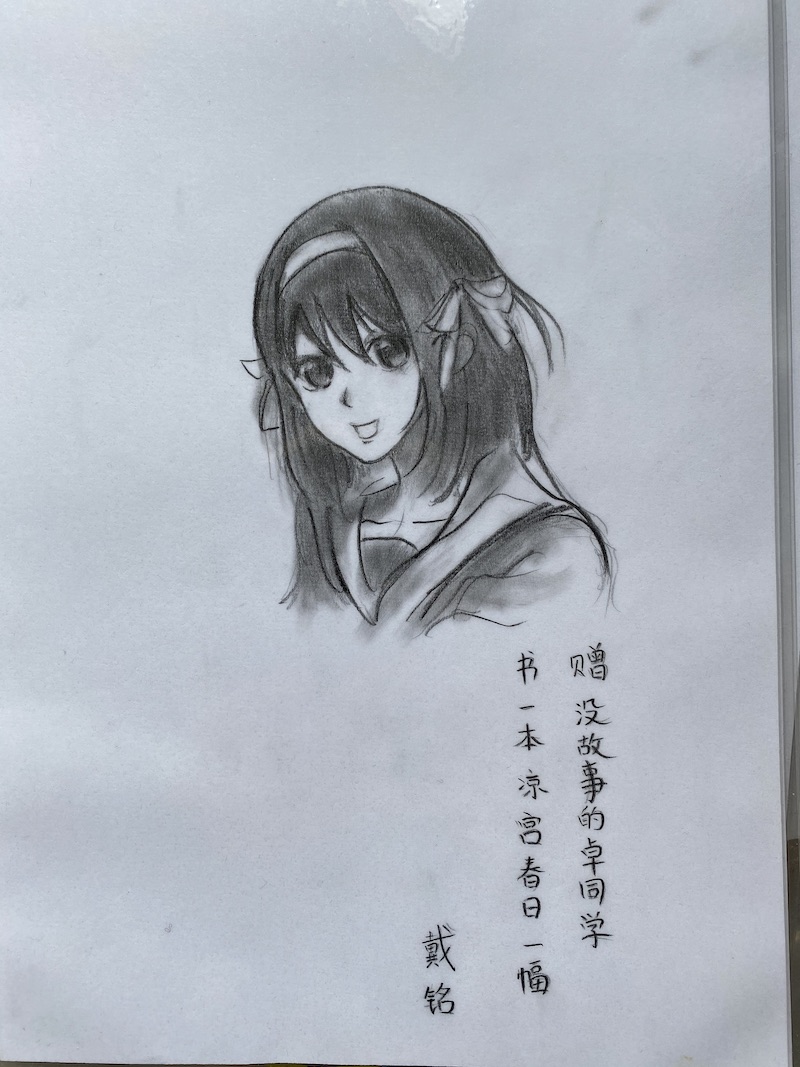 赠 没故事的卓同学
书一本 凉宫春日一幅
戴铭